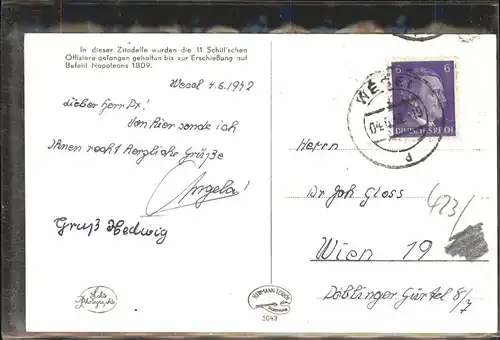 In dieser Zitadelle wurden die 11 Schill'schen
Offiziere gefangen gehalten bis zur Erschießung auf
Befehl Napoleons 1809.
Wesel 4.6.1942
Lieber Herr Dr!
Von hier sende ich
Ihnen recht herzliche Grüße
Angela!
Gruß Hedwig
Echte
Photographie
5043
6
6
DEUTSCHES REICH
WESEL
d
Herrn
Dr Joh Gloss
Wien 19
Döblinger Gürtel 8/7
423/